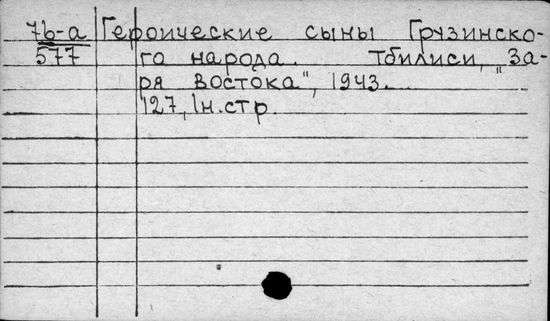 7b-a Героические сыны Грузинско-
577 го народа. Тбилиси, „За-
ря Востока", 1943.
127, 1н.стр.